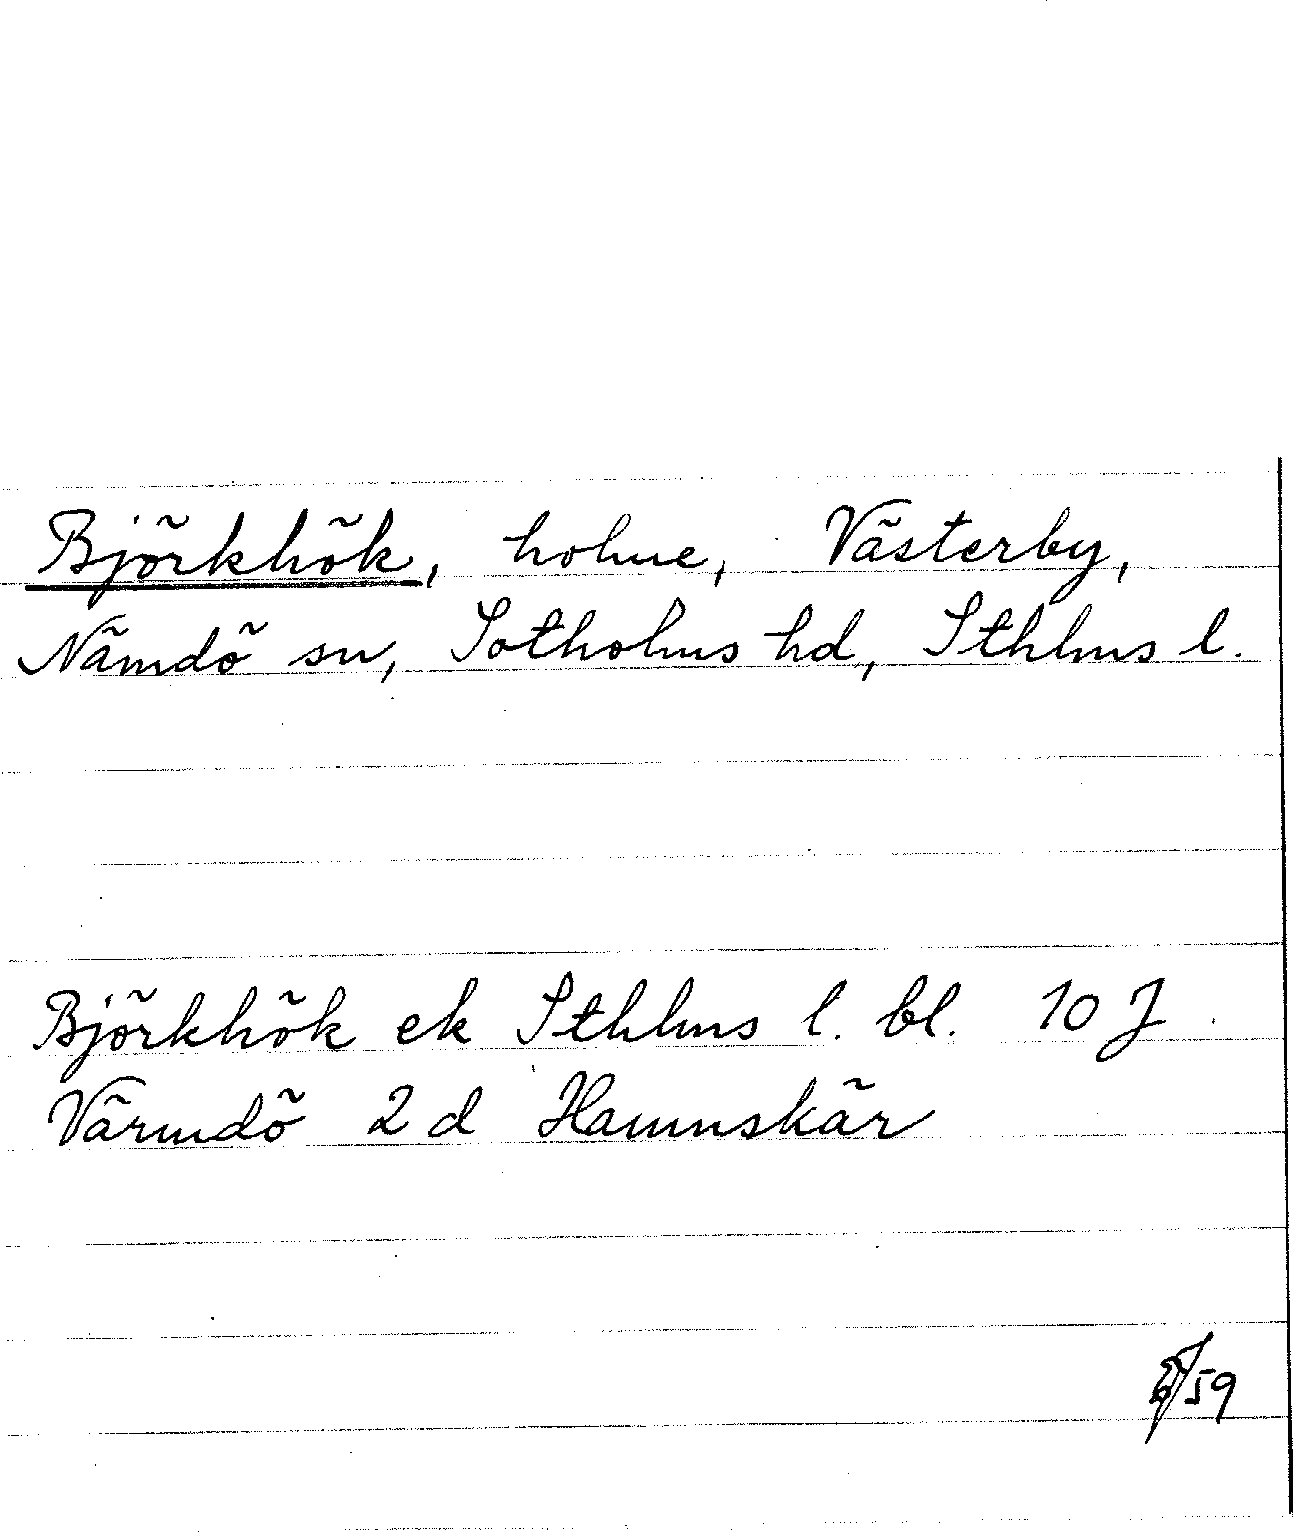 Björkhök, holme, Västerby,
Nämdö sn, Sotholms hd, Sthlms l.
Björkhök ek Sthlms l. bl. 10 J
Värmdö 2 d Hamnskär
59